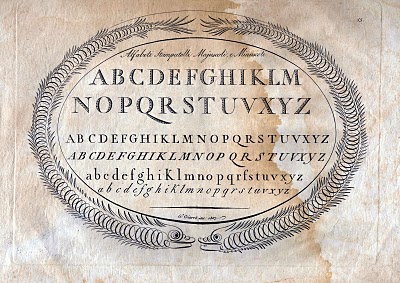 Alfabeti Stampatelli, Majuscoli, e Minuscoli
ABCDEFGHIKLM
NOPQRSTUVXYZ
ABCDEFGHIKLMNOPQRSTUVXYZ
ABCDEFGHIKLMNOPQRSTUVXYZ
abcdefghiklmnopqrfstuvxyz
abcdefghiklmnopqrstuvxyz